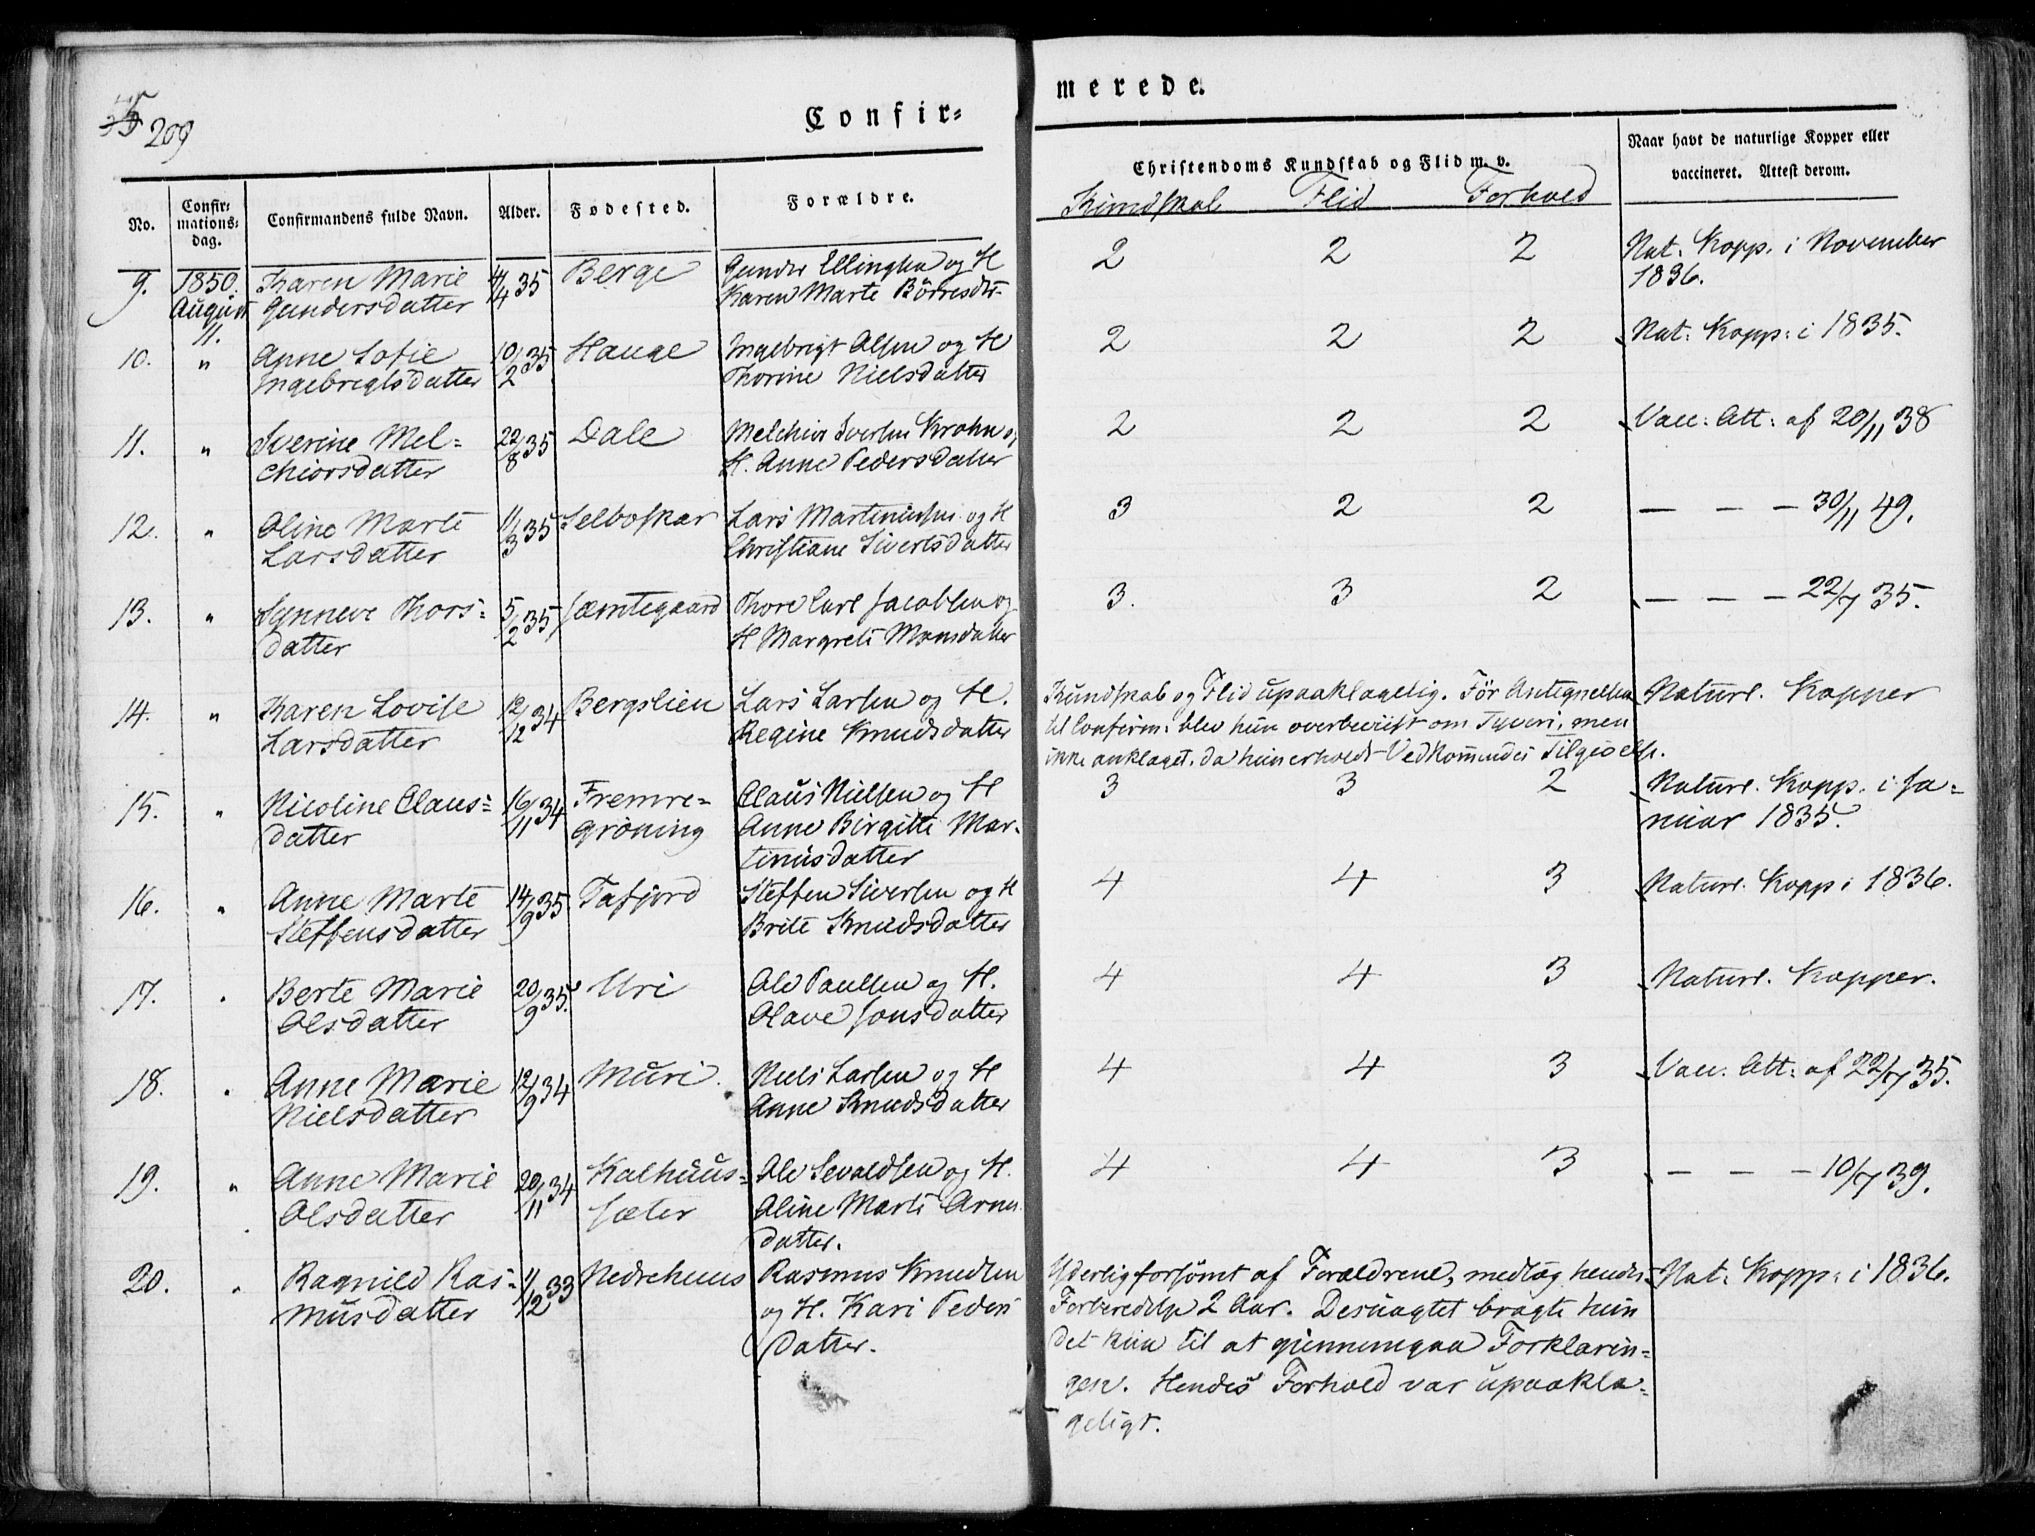 209
Confir=
merede.
No.
Confir=
mations=
dag.
Confirmandens fulde Navn.
Alder.
Fødested.
Forældre.
Christendoms Kundskab og Flid m. v.
Kundskab Flid Forhold
Naar havt de naturlige Kopper eller
vaccineret. Attest derom.
9. 1850. Karen Marie 14/4 35 Berge Gunder Ellingsen og H 2 2 2 Nat. Kopp. i November
August Gundersdatter Karen Marte Børresdtr 1836.
11.
10. " Anne Sofie 10/2 35 Hauge Ingebrigt Olsen og H 2 2 2 Nat: Kopp: i 1835.
Ingebrigtsdatter Thorine Nielsdatter
11. " Iverine Mel= 22/8 35 Dale Melchior Iversen Krohn og 2 2 2 Vacc: Att: af 20/11 38
chiorsdatter H. Anne Pedersdatter
12. " Oline Marte 11/3 35 Selboskar Lars Martinussen og H 3 2 2 — — — 30/11 49.
Larsdatter Christiane Sivertsdatter
13. " Synneve Thors= 5/2 35 Jæmtegaard Thore Carl Jacobsen og 3. 3 2 — — — 22/7 35.
datter H Margrete Monsdatter
14. " Karen Lovise 12/12 34 Bergslien Lars Larsen og H. Kundskab og Flid upaaklagelig. Før Antegnelsen Naturl. Kopper
Larsdatter Regine Knudsdatter til Confirm: blev hun overbeviist om Tyveri, men
ikke anklaget, da hun erholdt Vedkommendes Tilgivelse.
15. " Nicoline Claus= 16/11 34 Fremre= Claus Nielsen og H 3 3 2 Naturl. Kopp. i Ja=
datter grøning Anne Birgitte Mar= nuar 1835.
tinusdatter
16. " Anne Marte 14/9 35. Tafjord Steffen Sivertsen og H 4 4 3 Naturl. Kopp i 1836.
Steffensdatter Brite Knudsdatter
17. " Berte Marie 20/9 35. Uri Ole Paulsen og H. 4 4 3 Naturl. Kopper.
Olsdatter Olave Jonsdatter
18. " Anne Marie 12/9 34 Muri. Niels Larsen og H 4 4 3 Vacc. Att: af 22/7 35.
Nielsdatter Anne Knudsdatter
19. " Anne Marie 20/11 34 Kalhuus= Ole Sevaldsen og H. 4 4 3 — — — 10/7 39.
Olsdatter sæter Oline Marte Arne
datter.
20. " Ragnild Ras= 11/12 33 Nedrehuus Rasmus Knudsen Yderlig forsømt af Forældrene, medtog hendes Nat: Kopp: i 1836.
musdatter og H. Kari Peders Forberedelse 2 Aar. Desuagtet bragte hun
datter. det kun til at gjennemgaa Forklarin=
gen. Hendes Forhold var upaakla=
geligt.